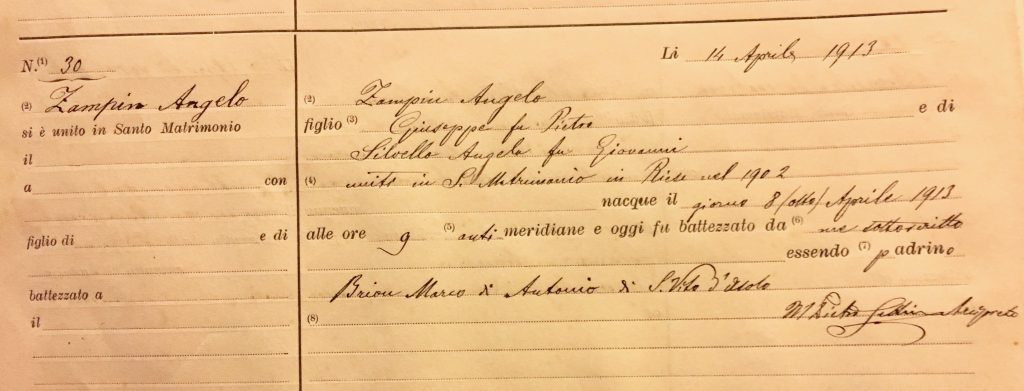 N.(1) 30
(2) Zampin Angelo
si è unito in Santo Matrimonio
il
a con
figlio di e di
battezzato a
il
Li 14 Aprile 1913
(2) Zampin Angelo
figlio (3) Giuseppe fu Pietro e di
Silvello Angela fu Giovanni
(4) uniti in S. Matrimonio in Riese nel 1902
nacque il giorno 8 (otto) Aprile 1913
alle ore 9 (5) anti meridiane e oggi fu battezzato da (6) me sottoscritto
essendo (7) padrino
Brion Marco di Antonio di S. Vito d'Asolo
(8) Arciprete